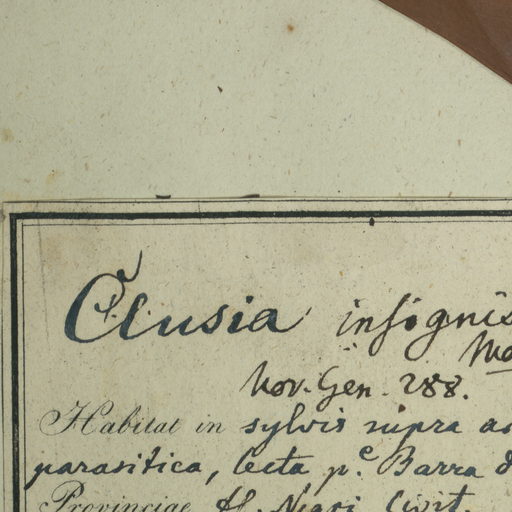 Clusia insignis
Nov. Gen. 288.
Habitat in sylvis supra
parasitica, lecta p.e Barra
Provinciae fl. Nigri Civit.